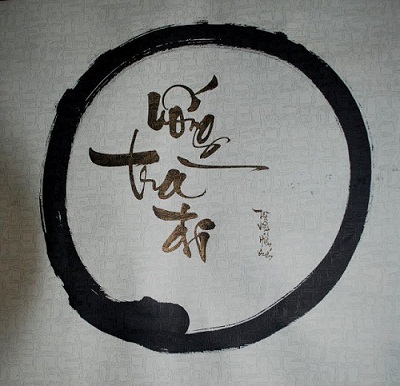 uống
trà
đi